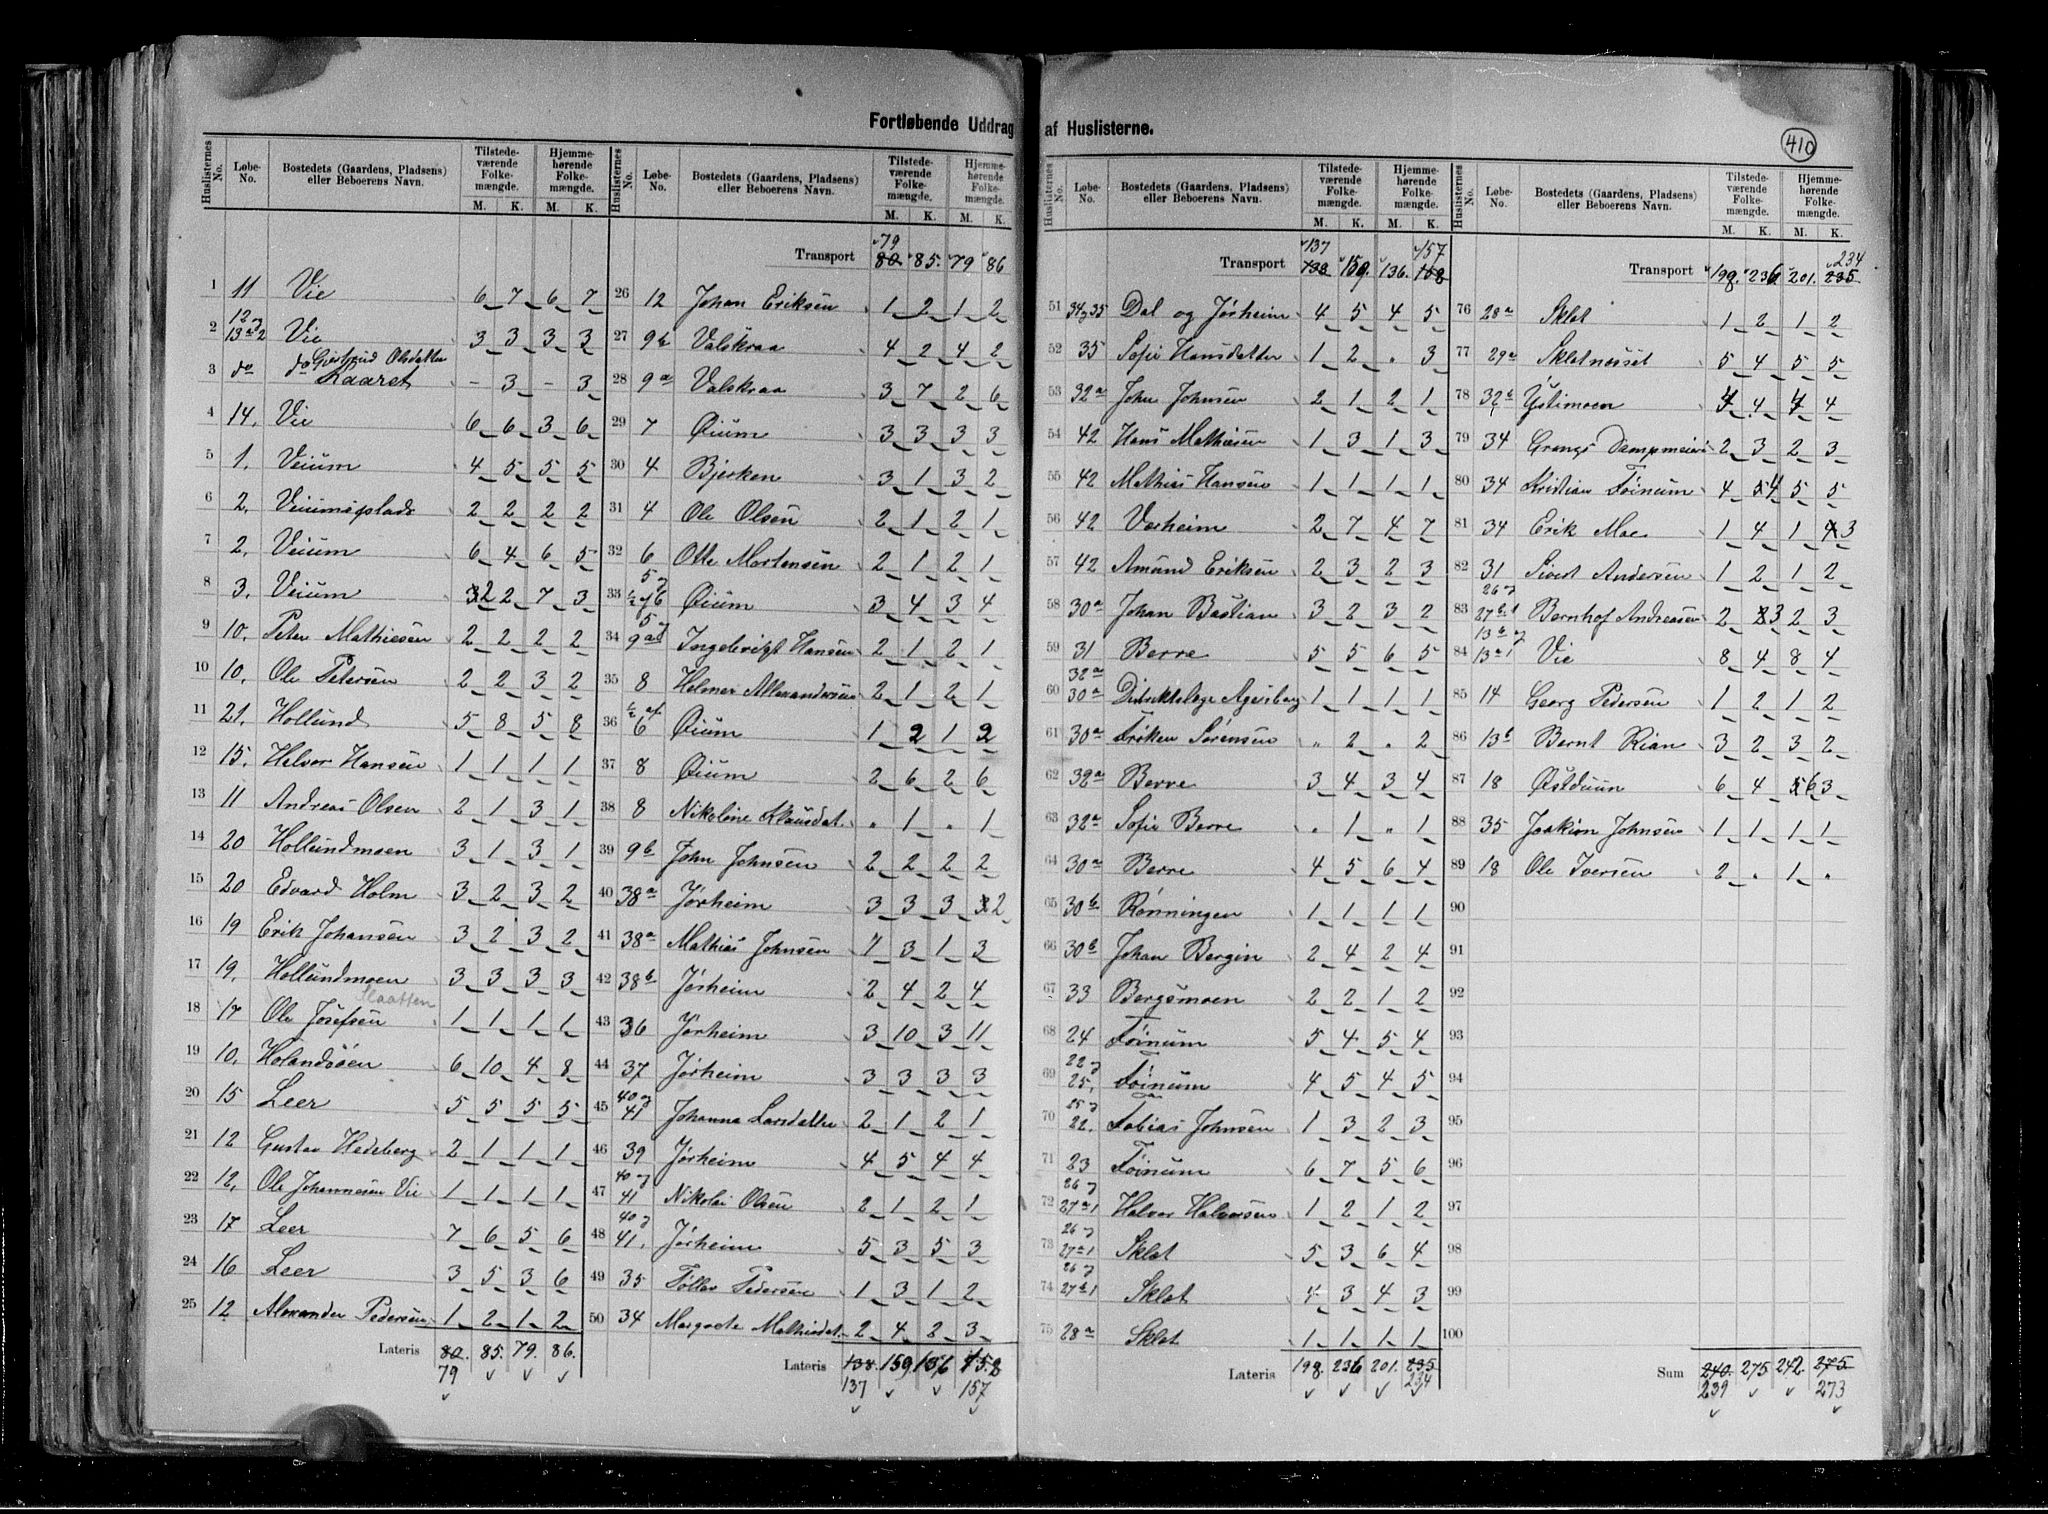 Fortløbende Uddrag af Huslisterne.
410
Huslisternes No. Løbe-No. Bostedets (Gaardens, Pladsens) eller Beboerens Navn. Tilstedeværende Folkemængde. M. K. Hjemmehørende Folkemængde. M. K.
1 11 Vie 6 7 6 7
2 12 og 13 a 2 Vie 3 3 3 3
3 do do Gjertrud Olsdatter Kaaret - 3 - 3
4 14. Vie 6 6 3 6
5 1. Veium 4 5 5 5
6 2. Veiumsplads 2 2 2 2
7 2. Veium 6 4 6 5
8 3. Veium 2 2 7 3
9 10. Peter Mathiesen 2 2 2 2
10 10. Ole Petersen 2 2 3 2
11 21. Hollund 5 8 5 8
12 15. Halvor Hansen 1 1 1 1
13 11 Andreas Olsen 2 1 3 1
14 20 Hollundmoen 3 1 3 1
15 20 Edvard Holm 3 2 3 2
16 19 Erik Johansen 3 2 3 2
17 19. Hollundmoen 3 3 3 3
Slaatten
18 17 Ole Josefsen 1 1 1 1
19 10. Holandsøen 6 10 4 8
20 15 Leer 5 5 5 5
21 12 Gustav Hedeberg 2 1 1 1
22 12. Ole Johannesen Vie 1 1 1 1
23 17 Leer 7 6 5 6
24 16 Leer 3 5 3 6
25 12 Alexander Pedersen 1 2 1 2
Lateris 80. 85. 79. 86.
79
Huslisternes No. Løbe-No. Bostedets (Gaardens, Pladsens) eller Beboerens Navn. Tilstedeværende Folkemængde. M. K. Hjemmehørende Folkemængde. M. K.
79
Transport 80 85. 79 86
26 12 Johan Eriksen 1 2 1 2
27 9b Valskraa 4 2 4 2
28 9a Valskraa 3 7 2 6
29 7 Øium 3 3 3 3
30 4 Bjerken 3 1 3 2
31 4 Ole Olsen 2 1 2 1
32 6 Otte Mortensen 2 1 2 1
33 5 og ½ af 6 Øium 3 4 3 4
34 5 og 9a Ingebrigt Hansen 2 1 2 1
35 8 Helmer Allexandersen 2 1 2 1
36 ½ af 6 Øium 1 2 1 2
37 8 Øium 2 6 2 6
38 8 Nikoline Klausdat. " 1 " 1
39 9b John Johnsen 2 2 2 2
40 38a Jørheim 3 3 3 2
41 38a Mathias Johnsen 1 3 1 3
42 38b Jørheim 2 4 2 4
43 36 Jørheim 3 10 3 11
44 37 Jørheim 3 3 3 3
45 40 og 41 Johanna Larsdatter 2 1 2 1
46 39 Jørheim 4 5 4 4
47 40 og 41 Nikolai Olsen 2 1 2 1
48 40 og 41. Jørheim 5 3 5 3
49 35 Tollev Pedersen 1 3 1 2
50 34 Margrete Mathisdat. 2 4 2 3
Lateris 138. 159 136 158
137 157
Huslisternes No. Løbe-No. Bostedets (Gaardens, Pladsens) eller Beboerens Navn. Tilstedeværende Folkemængde. M. K. Hjemmehørende Folkemængde. M. K.
137 157
Transport 138 159. 136. 158
51 34 og 35 Dal og Jørheim 4 5 4 5
52 35 Sofie Hansdatter 1 2 " 3
53 32a John Johnsen 2 1 2 1
54 42 Hans Mathiesen 1 3 1 3
55 42 Mathias Hansen 1 1 1 1
56 42 Verheim 2 7 4 7
57 42 Amund Eriksen 2 3 2 3
58 30a Johan Bastian 3 2 3 2
59 31 Berre 5 5 6 5
60 32a 30a Distriktslæge Agersborg 1 1 1 1
61 30a Frøken Sørensen " 2 " 2
62 32a Berre 3 4 3 4
63 32a Sofie Berre " 1 " 1
64 30a Berre 4 5 6 4
65 30b Rønningen 1 1 1 1
66 30b Johan Bergin 2 4 2 4
67 33 Bergsmoen 2 2 1 2
68 24 Føinum 5 4 5 4
69 22 og 25. Føinum 4 5 4 5
70 25 og 22. Tobias Johnsen 1 3 2 3
71 23 Føinum 6 7 5 6
72 26 og 27 a 1 Halvor Halvorsen 1 2 1 2
73 26 og 27 a 1 Sklet 5 3 6 4
74 26 og 27 b 1 Sklet 4 3 4 3
75 28a Sklet 1 1 1 1
Lateris 198. 236 201. 235
234
Huslisternes No. Løbe-No. Bostedets (Gaardens, Pladsens) eller Beboerens Navn. Tilstedeværende Folkemængde. M. K. Hjemmehørende Folkemængde. M. K.
234
Transport 198. 236 201. 235
76 28a Sklet 1 2 1 2
77 29a Skletnesset 5 4 5 5
78 32b Ystimoen 4 4
79 34 Grongs Dampmeieri 2 3 2 3
80 34 Kristian Føinum 4 4 5 5
81 34 Erik Moe 1 4 1 3
82 31 Sivert Andersen 1 2 1 2
83 26 og 27 b 1 Bernhof Andreasen 2 3 2 3
84 13 b og 13 a 1 Vie 8 4 8 4
85 14 Georg Pedersen 1 2 1 2
86 13b Bernt Rian 3 2 3 2
87 18 Østduun 6 4 6 3
88 35 Joakim Johnsen 1 1 1 1
89 18 Ole Iversen 2 " 1 "
90
91
92
93
94
95
96
97
98
99
100
Sum 240. 275 242. 275.
239 273